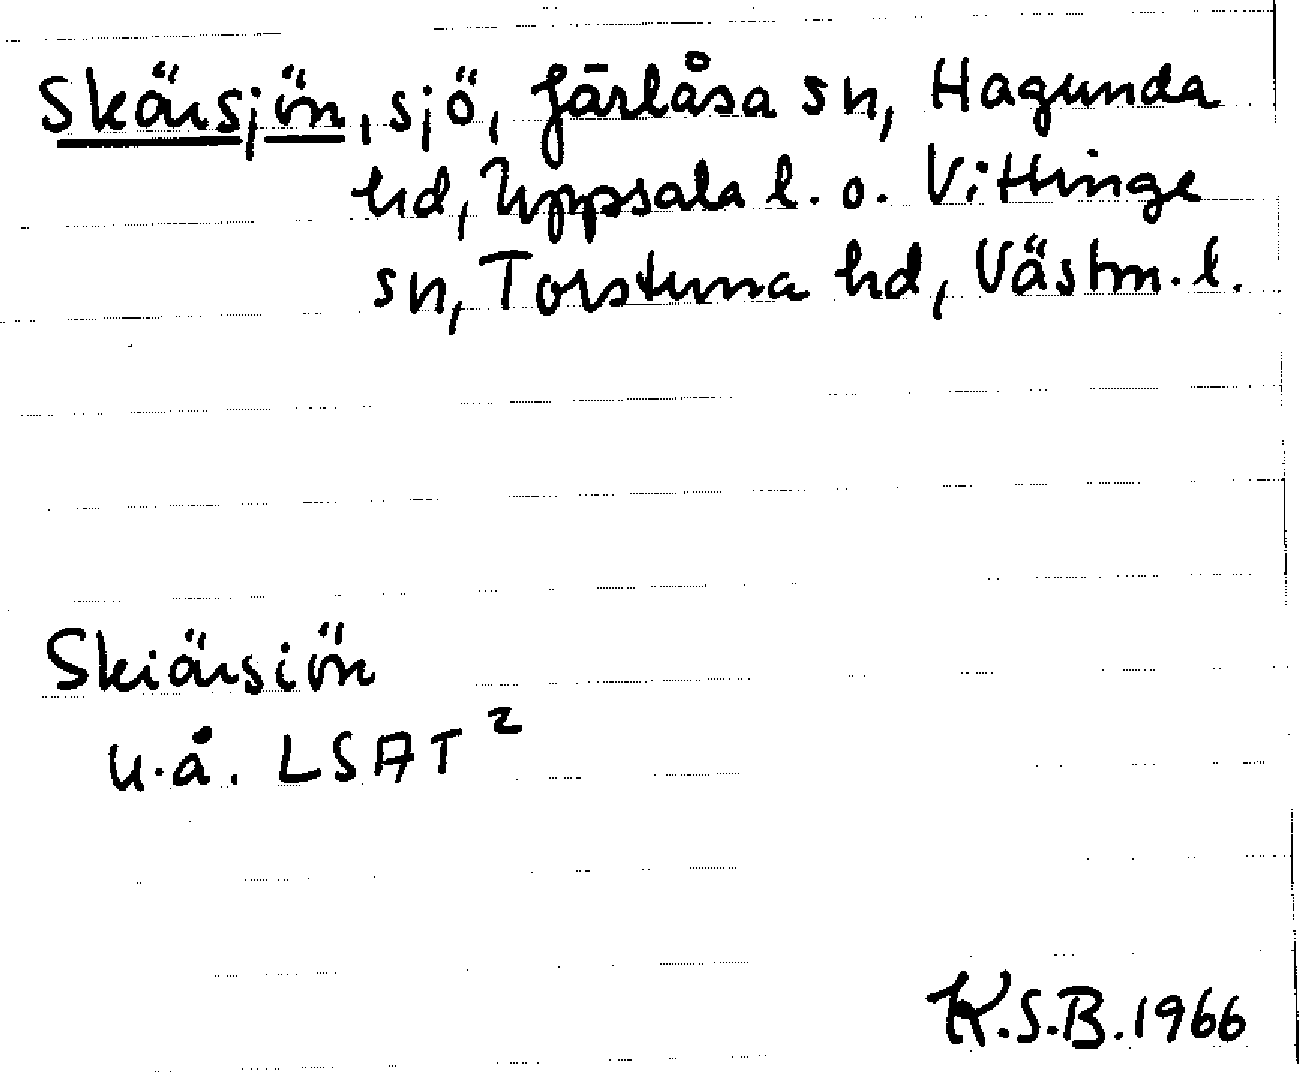 Skärsjön, sjö, Järlåsa sn, Hagunda
hd, Uppsala l. o. Vittinge
sn, Torstuna hd, Västm. l.
Skiärsiön
u.å. LSAT²
K.S.B. 1966